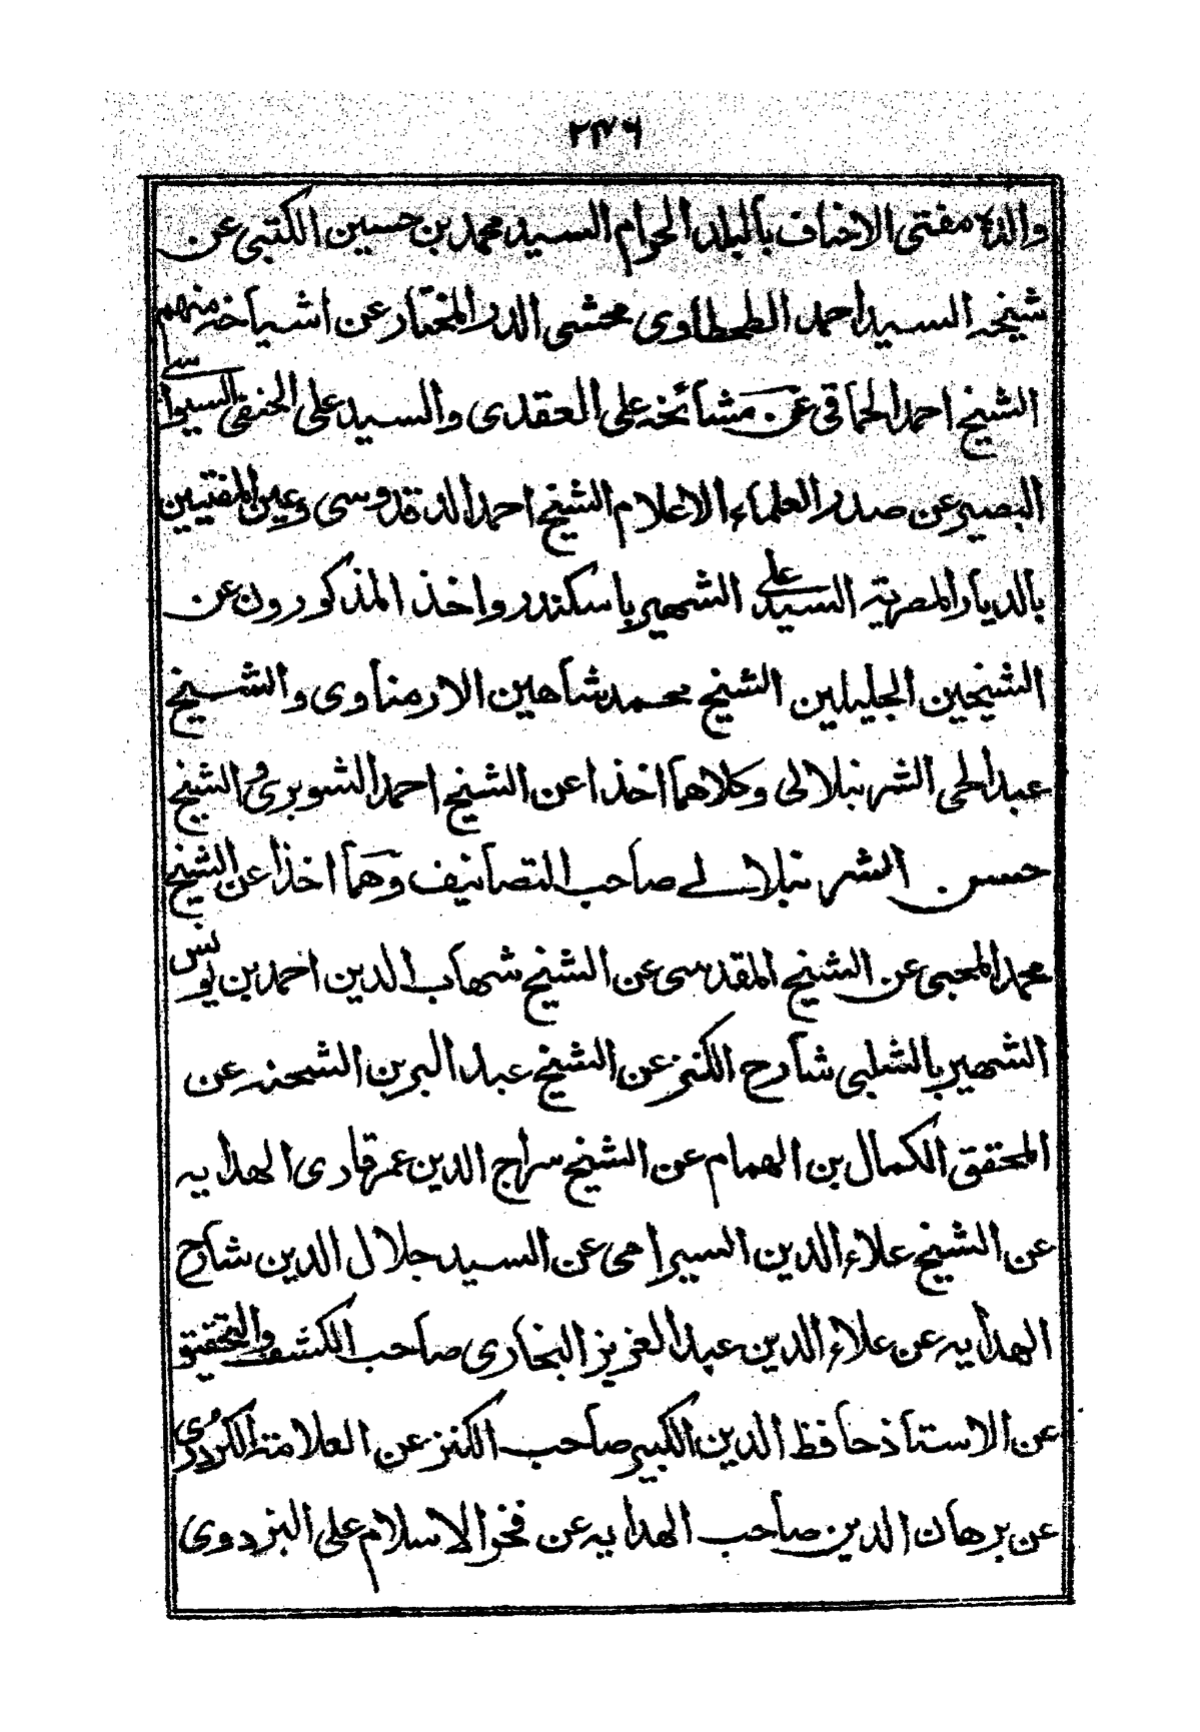 ۲۴۶
والدہ مفتی الاحناف بالبلد الحرام السید محمد بن حسین الکتبی عن
شیخہ السید احمد الطحطاوی محشی الدر المختار عن اشیاخہ منہم
الشیخ احمد الحماقی عن مشائخہ علی العقدی والسید علی الحنفی السیواسی
البصیر عن صدر العلماء الاعلام الشیخ احمد الدقدوسی وعین المفتیین
بالدیار المصریۃ السید علی الشھیر باسکندر واخذ المذکورون عن
الشیخین الجلیلین الشیخ محمد شاھین الارمناوی والشیخ
عبد الحی الشرنبلالی وکلاھما اخذا عن الشیخ احمد الشوبری والشیخ
حسن الشرنبلالے صاحب التصانیف وھما اخذا عن الشیخ
محمد المحبی عن الشیخ المقدسی عن الشیخ شھاب الدین احمد بن یونس
الشھیر بالشلبی شارح الکنز عن الشیخ عبد البر بن الشحنہ عن
المحقق الکمال بن الھمام عن الشیخ سراج الدین عمر قاری الھدایہ
عن الشیخ علاء الدین السیرامی عن السید جلال الدین شارح
الھدایہ عن علاء الدین عبد العزیز البخاری صاحب الکشف والتحقیق
عن الاستاذ حافظ الدین الکبیر صاحب الکنز عن العلامۃ الکردری
عن برھان الدین صاحب الھدایہ عن فخر الاسلام علی البزدوی